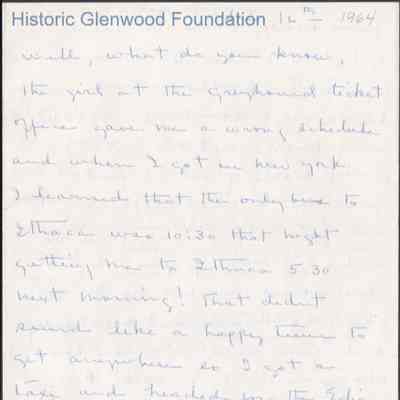 Historic Glenwood Foundation 16 th 1964
Well, what do you know,
the girl at the Greyhound ticket
office gave me a wrong schedule
and when I got in New York
I learned that the only bus to
Ithaca was 10:30 that night
getting me to Ithaca 5.30
next morning! That didn't
sound like a happy time to
get anywhere so I got a
taxi and headed for the